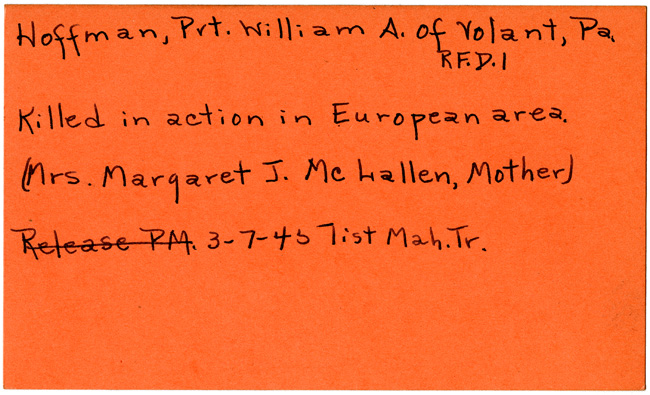 Hoffman, Pvt. William A. of Volant, Pa.
R.F.D. 1
Killed in action in European area.
(Mrs. Margaret J. McLallen, Mother)
Release PM. 3-7-45 list Mah. Tr.